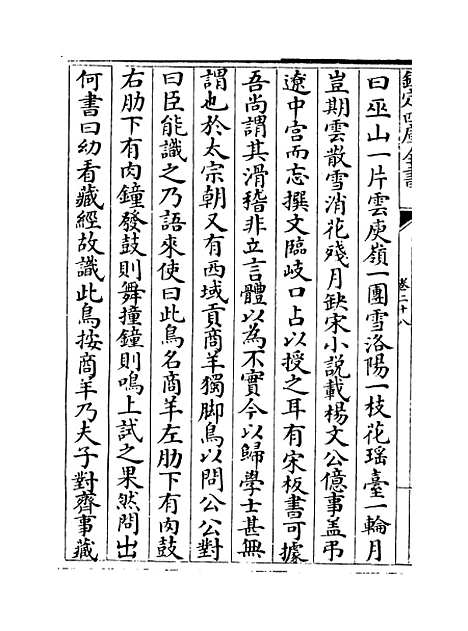 欽定四庫全書
卷二十八
曰巫山一片雲庾嶺一團雪洛陽一枝花瑶臺一輪月
豈期雲散雪消花殘月缺宋小説載楊文公億事盖弔
遼中宫而忘撰文臨岐口占以授之耳有宋板書可據
吾尚謂其滑稽非立言體以為不實今以歸學士甚無
謂也於太宗朝又有西域貢商羊獨脚鳥以問公公對
曰臣能識之乃語來使曰此鳥名商羊左肋下有肉鼓
右肋下有肉鐘發鼓則舞撞鐘則鳴上試之果然問出
何書曰幼看藏經故識此鳥按商羊乃夫子對齊事藏